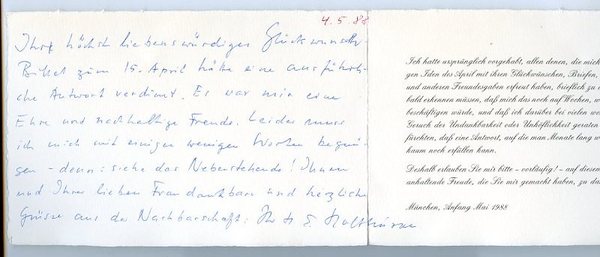 4.5.88
Ihr höchst liebenswürdiger Glückwunsch-
Billet zum 15. April hätte eine ausführli-
che Antwort verdient. Es war mir eine
Ehre und nachhaltige Freude. Leider muss
ich mich mit einigen wenigen Worten begnü-
gen - denn: siehe das Nebenstehende! Ihnen
und Ihrer lieben Frau dankbare und herzliche
Grüsse aus der Nachbarschaft: Ihr
Ich hatte ursprünglich vorgehabt, allen denen, die mich
gen Iden des April mit ihren Glückwünschen, Briefen,
und anderen Freundesgaben erfreut haben, brieflich zu
bald erkennen müssen, daß mich das noch auf Wochen, w
beschäftigen würde, und daß ich darüber bei vielen wo
Geruch der Undankbarkeit oder Unhöflichkeit geraten
fürchten, daß eine Antwort, auf die man Monate lang w
kaum noch erfüllen kann.
Deshalb erlauben Sie mir bitte – vorläufig! – auf diesem
anhaltende Freude, die Sie mir gemacht haben, zu da
München, Anfang Mai 1988